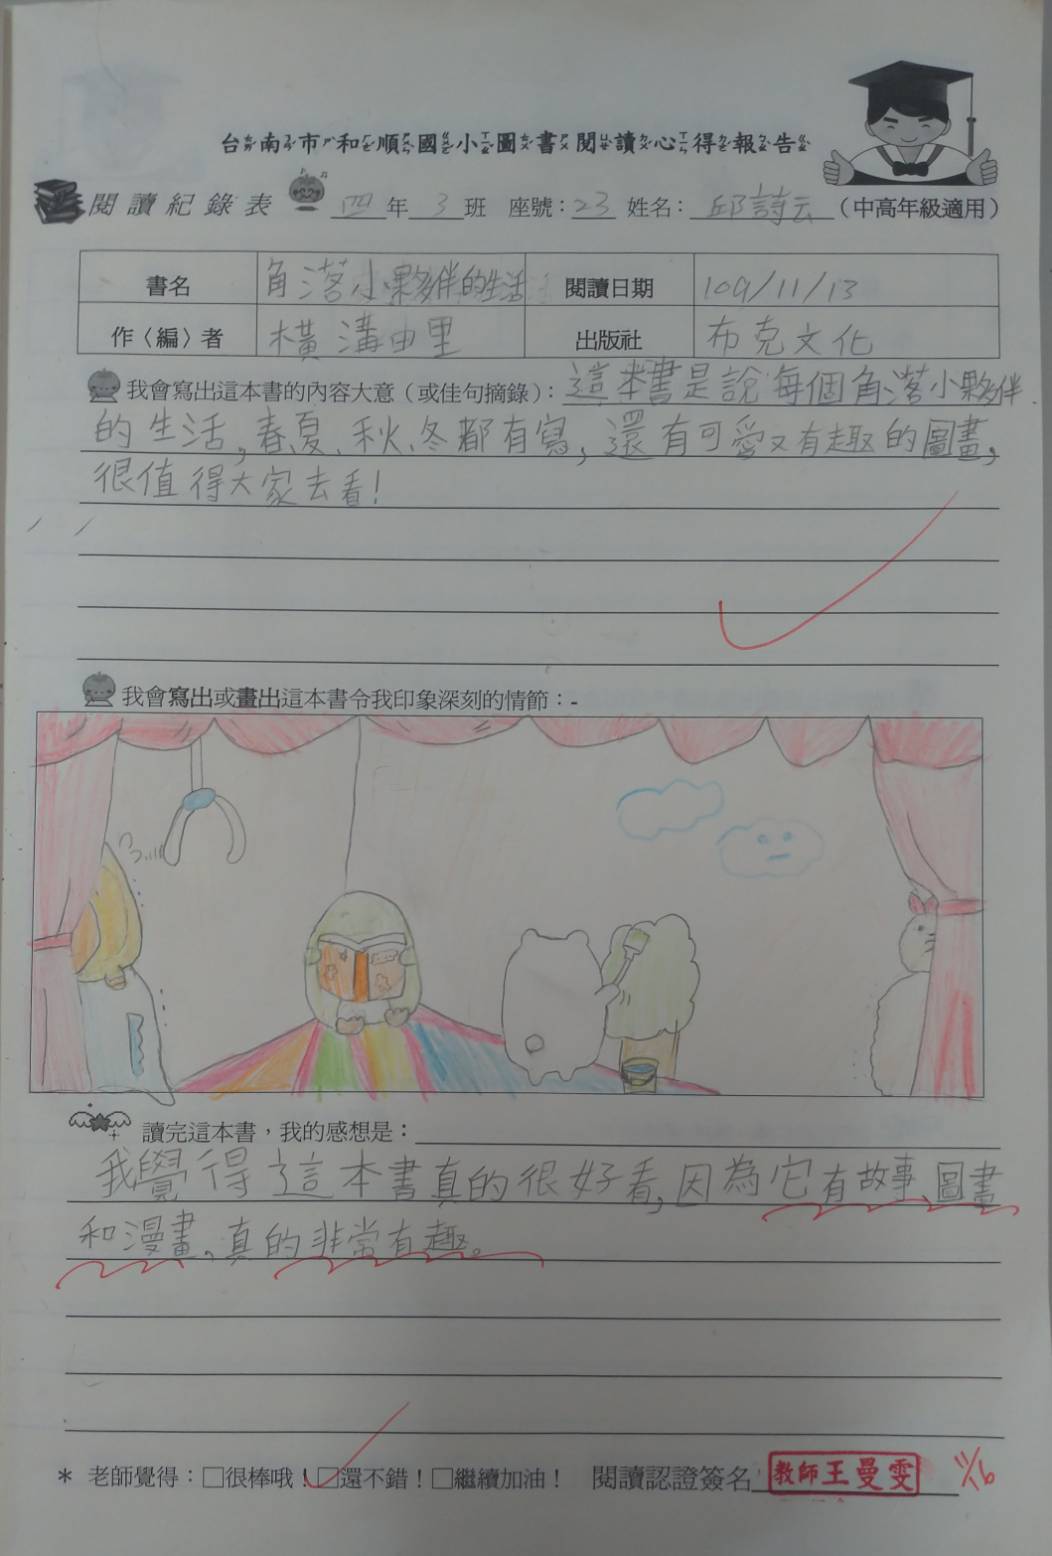 台南市和順國小圖書閱讀心得報告
閱讀紀錄表 四年3班 座號:23 姓名:邱詩云(中高年級適用)
書名 角落小夥伴的生活 閱讀日期 109/11/13
作〈編〉者 橫溝由里 出版社 布克文化
我會寫出這本書的內容大意(或佳句摘錄):這本書是說每個角落小夥伴
的生活,春、夏、秋、冬都有寫,還有可愛又有趣的圖畫,
很值得大家去看!
我會寫出或畫出這本書令我印象深刻的情節:-
讀完這本書,我的感想是:
我覺得這本書真的很好看,因為它有故事、圖畫
和漫畫,真的非常有趣。
* 老師覺得:□很棒哦!□還不錯!□繼續加油! 閱讀認證簽名 教師王曼雯 11/16